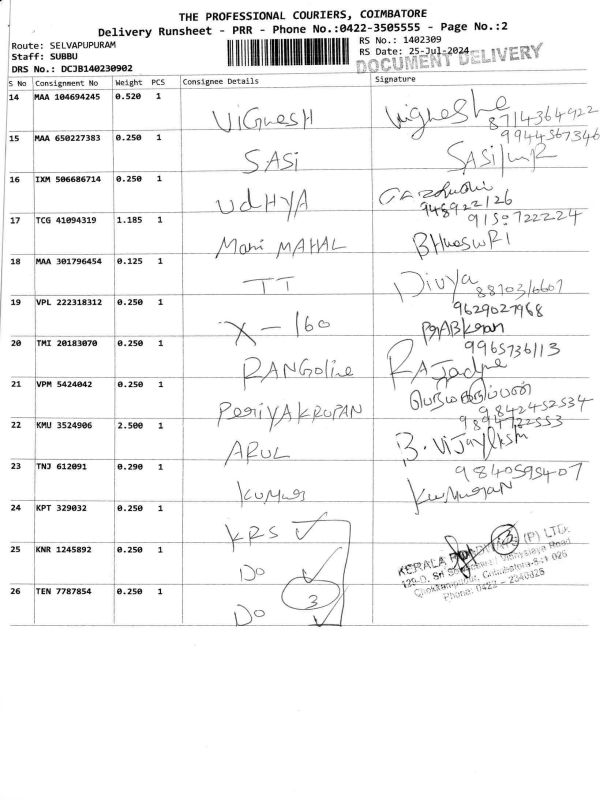 THE PROFESSIONAL COURIERS, COIMBATORE
Delivery Runsheet - PRR - Phone No.:0422-3505555 - Page No.:2
Route: SELVAPUPURAM
RS No.: 1402309
Staff: SUBBU
RS Date: 25-Jul-2024
DRS No.: DCJB140230902
DOCUMENT DELIVERY
S No Consignment No Weight PCS Consignee Details Signature
14 MAA 104694245 0.520 1 ViGnesH Vigneshe
8714364922
15 MAA 650227383 0.250 1 SASi SASi
9944567346
16 IXM 506686714 0.250 1 UdHYA
948922126
17 TCG 41094319 1.185 1 Mani MAHAL BHuesWRI
9150722224
18 MAA 301796454 0.125 1 TT Divya
19 VPL 222318312 0.250 1 X-160
9629027968
20 TMI 20183070 0.250 1 RANGoline
9965736113
21 VPM 5424042 0.250 1 PeriYAKRUPAN
9842452534
22 KMU 3524906 2.500 1 ARUL B. Vijaylksm
9894722553
23 TNJ 612091 0.290 1 Kumar
9840595407
24 KPT 329032 0.250 1 KRS ✓
25 KNR 1245892 0.250 1 Do ✓
3
26 TEN 7787854 0.250 1 Do ✓
3
KERALA (P) LTD.
Phone: 0422 -